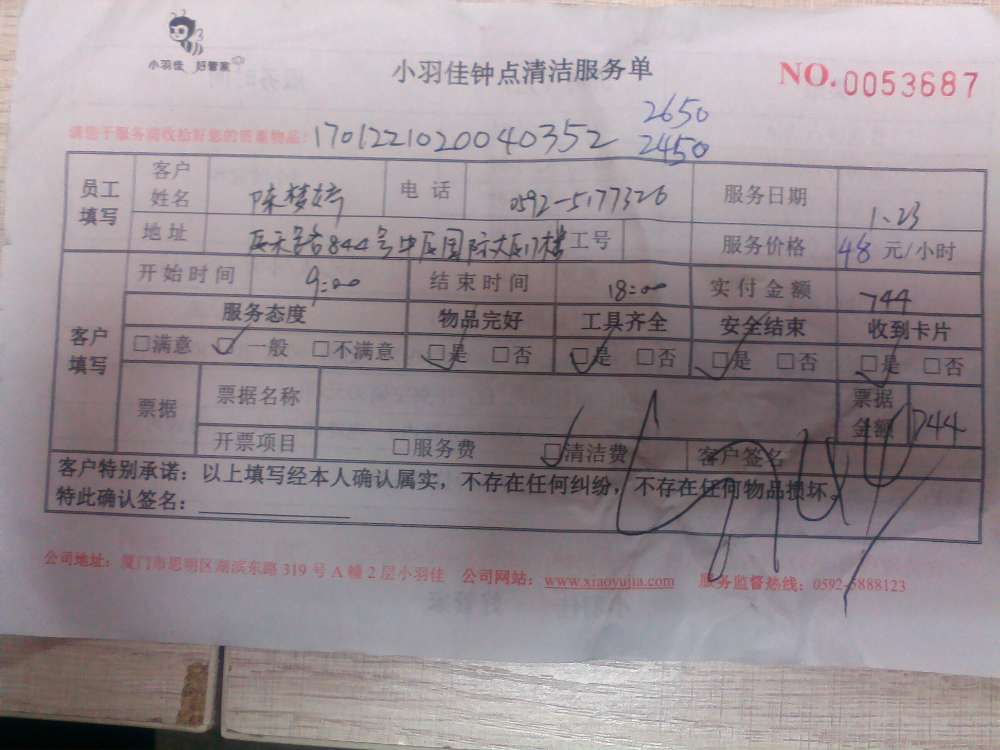 小羽佳 好管家
小羽佳钟点清洁服务单
NO.0053687
2650
请您于服务前收拾好您的贵重物品:1701221020040352 2450
员工填写 客户姓名 陈梦婷 电话 0592-5177326 服务日期 1.23
地址 844号中 国际大厦 楼 工号 服务价格 48元/小时
开始时间 9:00 结束时间 18:00 实付金额 744
客户填写 服务态度 物品完好 工具齐全 安全结束 收到卡片
□满意 □一般 □不满意 □是 □否 □是 □否 □是 □否 □是 □否
票据 票据名称 票据金额 744
开票项目 □服务费 □清洁费 客户签名
客户特别承诺:以上填写经本人确认属实,不存在任何纠纷,不存在任何物品损坏。
特此确认签名:
公司地址:厦门市思明区湖滨东路319号A幢2层小羽佳 公司网站:www.xiaoyujia.com 服务监督热线:0592-5888123